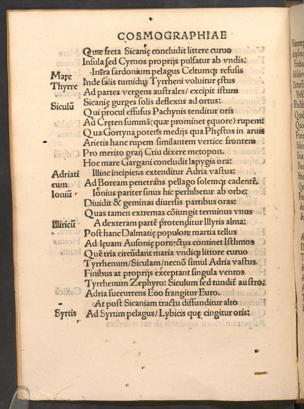 COSMOGRAPHIAE
Quæ freta Sicanię concludit littere curuo
Insula sed Cyrnos proprijs pulsatur ab vndis:
Infra sardonium pelagus Celtumqȝ refusis
Mare Inde salis tumidus Tyrrheni voluitur ęstus
Thyrre Ad partes vergens australes/ excipit istum
Siculū Sicanię gurges solis deflexus ad ortus:
Qui procul effusus Pachynis tenditur oris
Ad Cretęn summā/ quæ prominet equore/ rupem:
Qua Gortyna potens medijs qua Phęstos in aruis
Arietis hanc rupem similantem vertice frontem
Pro merito graij Criu dixere metopon.
Hoc mare Gargani concludit Iapygis ora:
Adriati Illinc incipiens extenditur Adria vastus:
cum. Ad Boream penetrans pellago solemqȝ cadentē.
Ioniū Ionius pariter sinus hic perhibetur ab orbe:
Diuidit & geminas diuersis partibus oras:
Quas tamen extremas cōiungit terminus vnus
Illiricū A dexteram partē protenditur Illyris alma:
Post hanc Dalmatię populorę martia tellus
Ad lęuam Ausonię porrectus continet Isthmos
Quē tria circūdant maria vndiqȝ littore curuo
Tyrrhenum/ Siculum/ necnō simul Adria vastus.
Finibus at proprijs exceptant singula ventos
Tyrrhenum Zephyro: Siculum sed tundit austro
Adria succurrens Eoo frangitur Euro.
At post Sicaniam tractu diffunditur alto
Syrtis Ad Syrtim pelagus/ Lybicis quę cingitur oris: